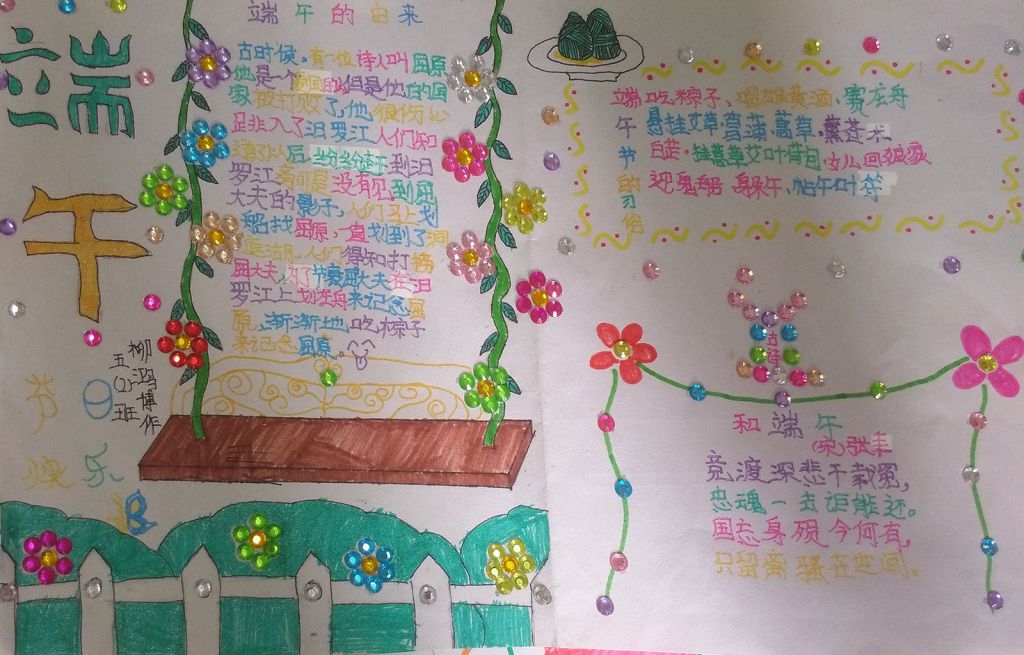 端
午
节日
快乐
五(2)班
柳鸿博作
端午的由来
古时候,有一位诗人叫屈原
他是一个爱国的但是他的国
家被打败了,他很伤心
江人们知
到汨
罗江,可是没有见到屈
大夫的影子,人们马上划
船找屈原,一直划到了洞
庭湖,人们得知打捞
屈大夫,大夫在汨
罗江上划龙舟来记念屈
原,渐渐地吃粽子
来记念屈原。
端午节的习俗
吃粽子、喝雄黄酒、赛龙舟
悬挂艾草菖蒲、蒿草,薰苍术
白芷,挂
迎鬼船 躲午,帖午叶符
古诗
和端午
(宋)张耒
竞渡深悲千载冤,
忠魂一去讵能还。
国忘身殒今何有,
只留离骚在空间。